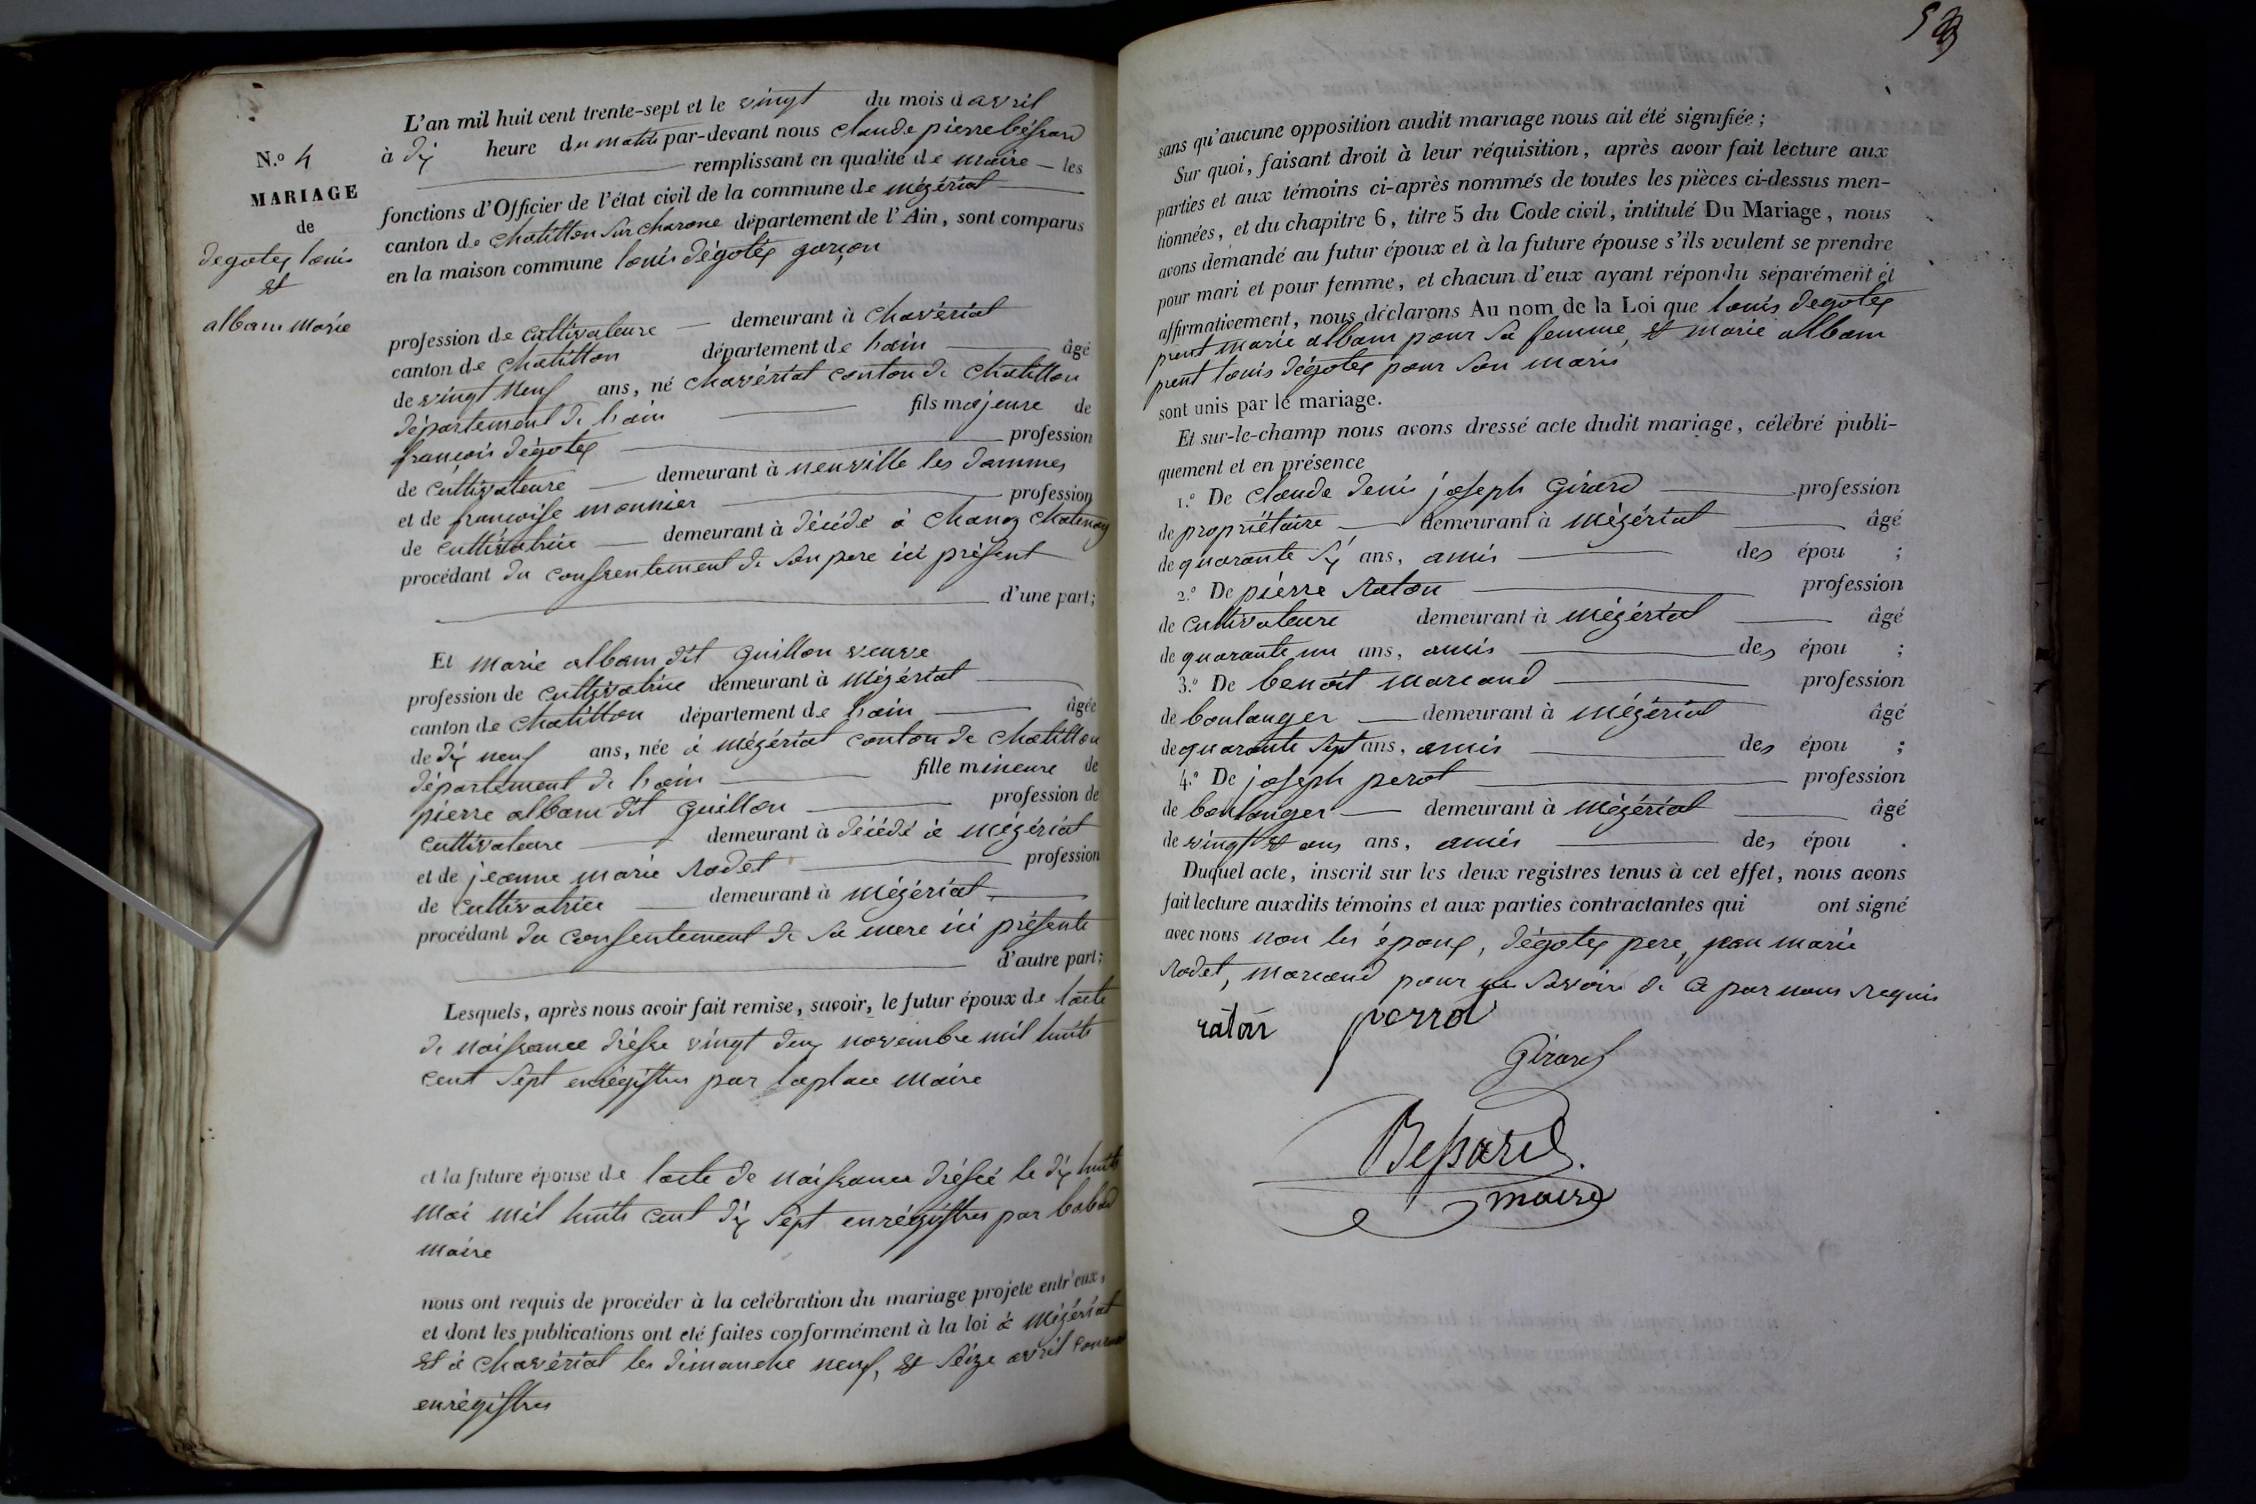 L'an mil huit cent trente-sept et le vingt du mois d avril
à dix heure du matin par-devant nous claude pierre béssard
remplissant en qualité de maire les
fonctions d'Officier de l'état civil de la commune de mézériat
canton de chatillon sur charone département de l'Ain, sont comparus
en la maison commune louis dégotex garçon
N.o 4
MARIAGE
de
degotex louis
et
albam marie
profession de cultivateure demeurant à chavériat
canton de chatillon département de lain âgé
de vingt neuf ans, né chavériat conton de chatillon
département de lain fils majeure de
françois dégotex profession
de cultivateure demeurant à neuville les dammes
et de françoise monnier profession
de cultivatrice demeurant à décédé à chanoz chatenay
procédant du consentement de son pere ici présent
d'une part;
Et marie albam dit guillon veuve
profession de cultivatrice demeurant à mézériat
canton de chatillon département de lain âgée
de dix neuf ans, née à mézériat conton de chatillon
département de lain fille mineure de
pierre albam dit guillon profession de
cultivateure demeurant à décédé à mézériat
et de jeanne marie radet profession
de cultivatrice demeurant à mézériat
procédant du consentement de sa mere ici présente
d'autre part;
Lesquels, après nous avoir fait remise, savoir, le futur époux de lacte
de naissance drésse vingt deux novembre mil huits
cent sept enrégistres par laplace maire
et la future épouse de lacte de naissance dréssé le dix huits
mai mil huits cent dix sept enrégistres par
maire
nous ont requis de procéder à la celébration du mariage projete entr'eux,
et dont les publications ont eté faites conformément à la loi à mézériat
et à chavériat les dimanche neuf, et séize avril courant
enrégistres
sans qu'aucune opposition audit mariage nous ait été signifiée;
Sur quoi, faisant droit à leur réquisition, après avoir fait lecture aux
parties et aux témoins ci-après nommés de toutes les pièces ci-dessus men-
tionnées, et du chapitre 6, titre 5 du Code civil, intitulé Du Mariage, nous
avons demandé au futur époux et à la future épouse s'ils veulent se prendre
pour mari et pour femme, et chacun d'eux ayant répondu séparément et
affirmativement, nous déclarons Au nom de la Loi que louis degotex
prent marie albam pour sa femme, et marie albam
prent louis dégotex pour son maris
sont unis par le mariage.
Et sur-le-champ nous avons dressé acte dudit mariage, célébré publi-
quement et en présence
1.o De claude denis joseph girard profession
de propriétaire demeurant à mézériat âgé
de quarante six ans, amis des épou ;
2.o De pierre raton profession
de cultivateure demeurant à mézériat âgé
de quarante un ans, amis des épou ;
3.o De benoit marcand profession
de boulanger demeurant à mézériat âgé
de quarante sept ans, amis des épou ;
4.o De joseph perot profession
de boulanger demeurant à mézériat âgé
de vingt et ans, amis des épou .
Duquel acte, inscrit sur les deux registres tenus à cet effet, nous avons
fait lecture auxdits témoins et aux parties contractantes qui ont signé
avec nous non les époux, dégotex pere, jean marie
radet, marcand pour ne savoire de ce par nous requis
raton perrot
Girard
Bessard
maire